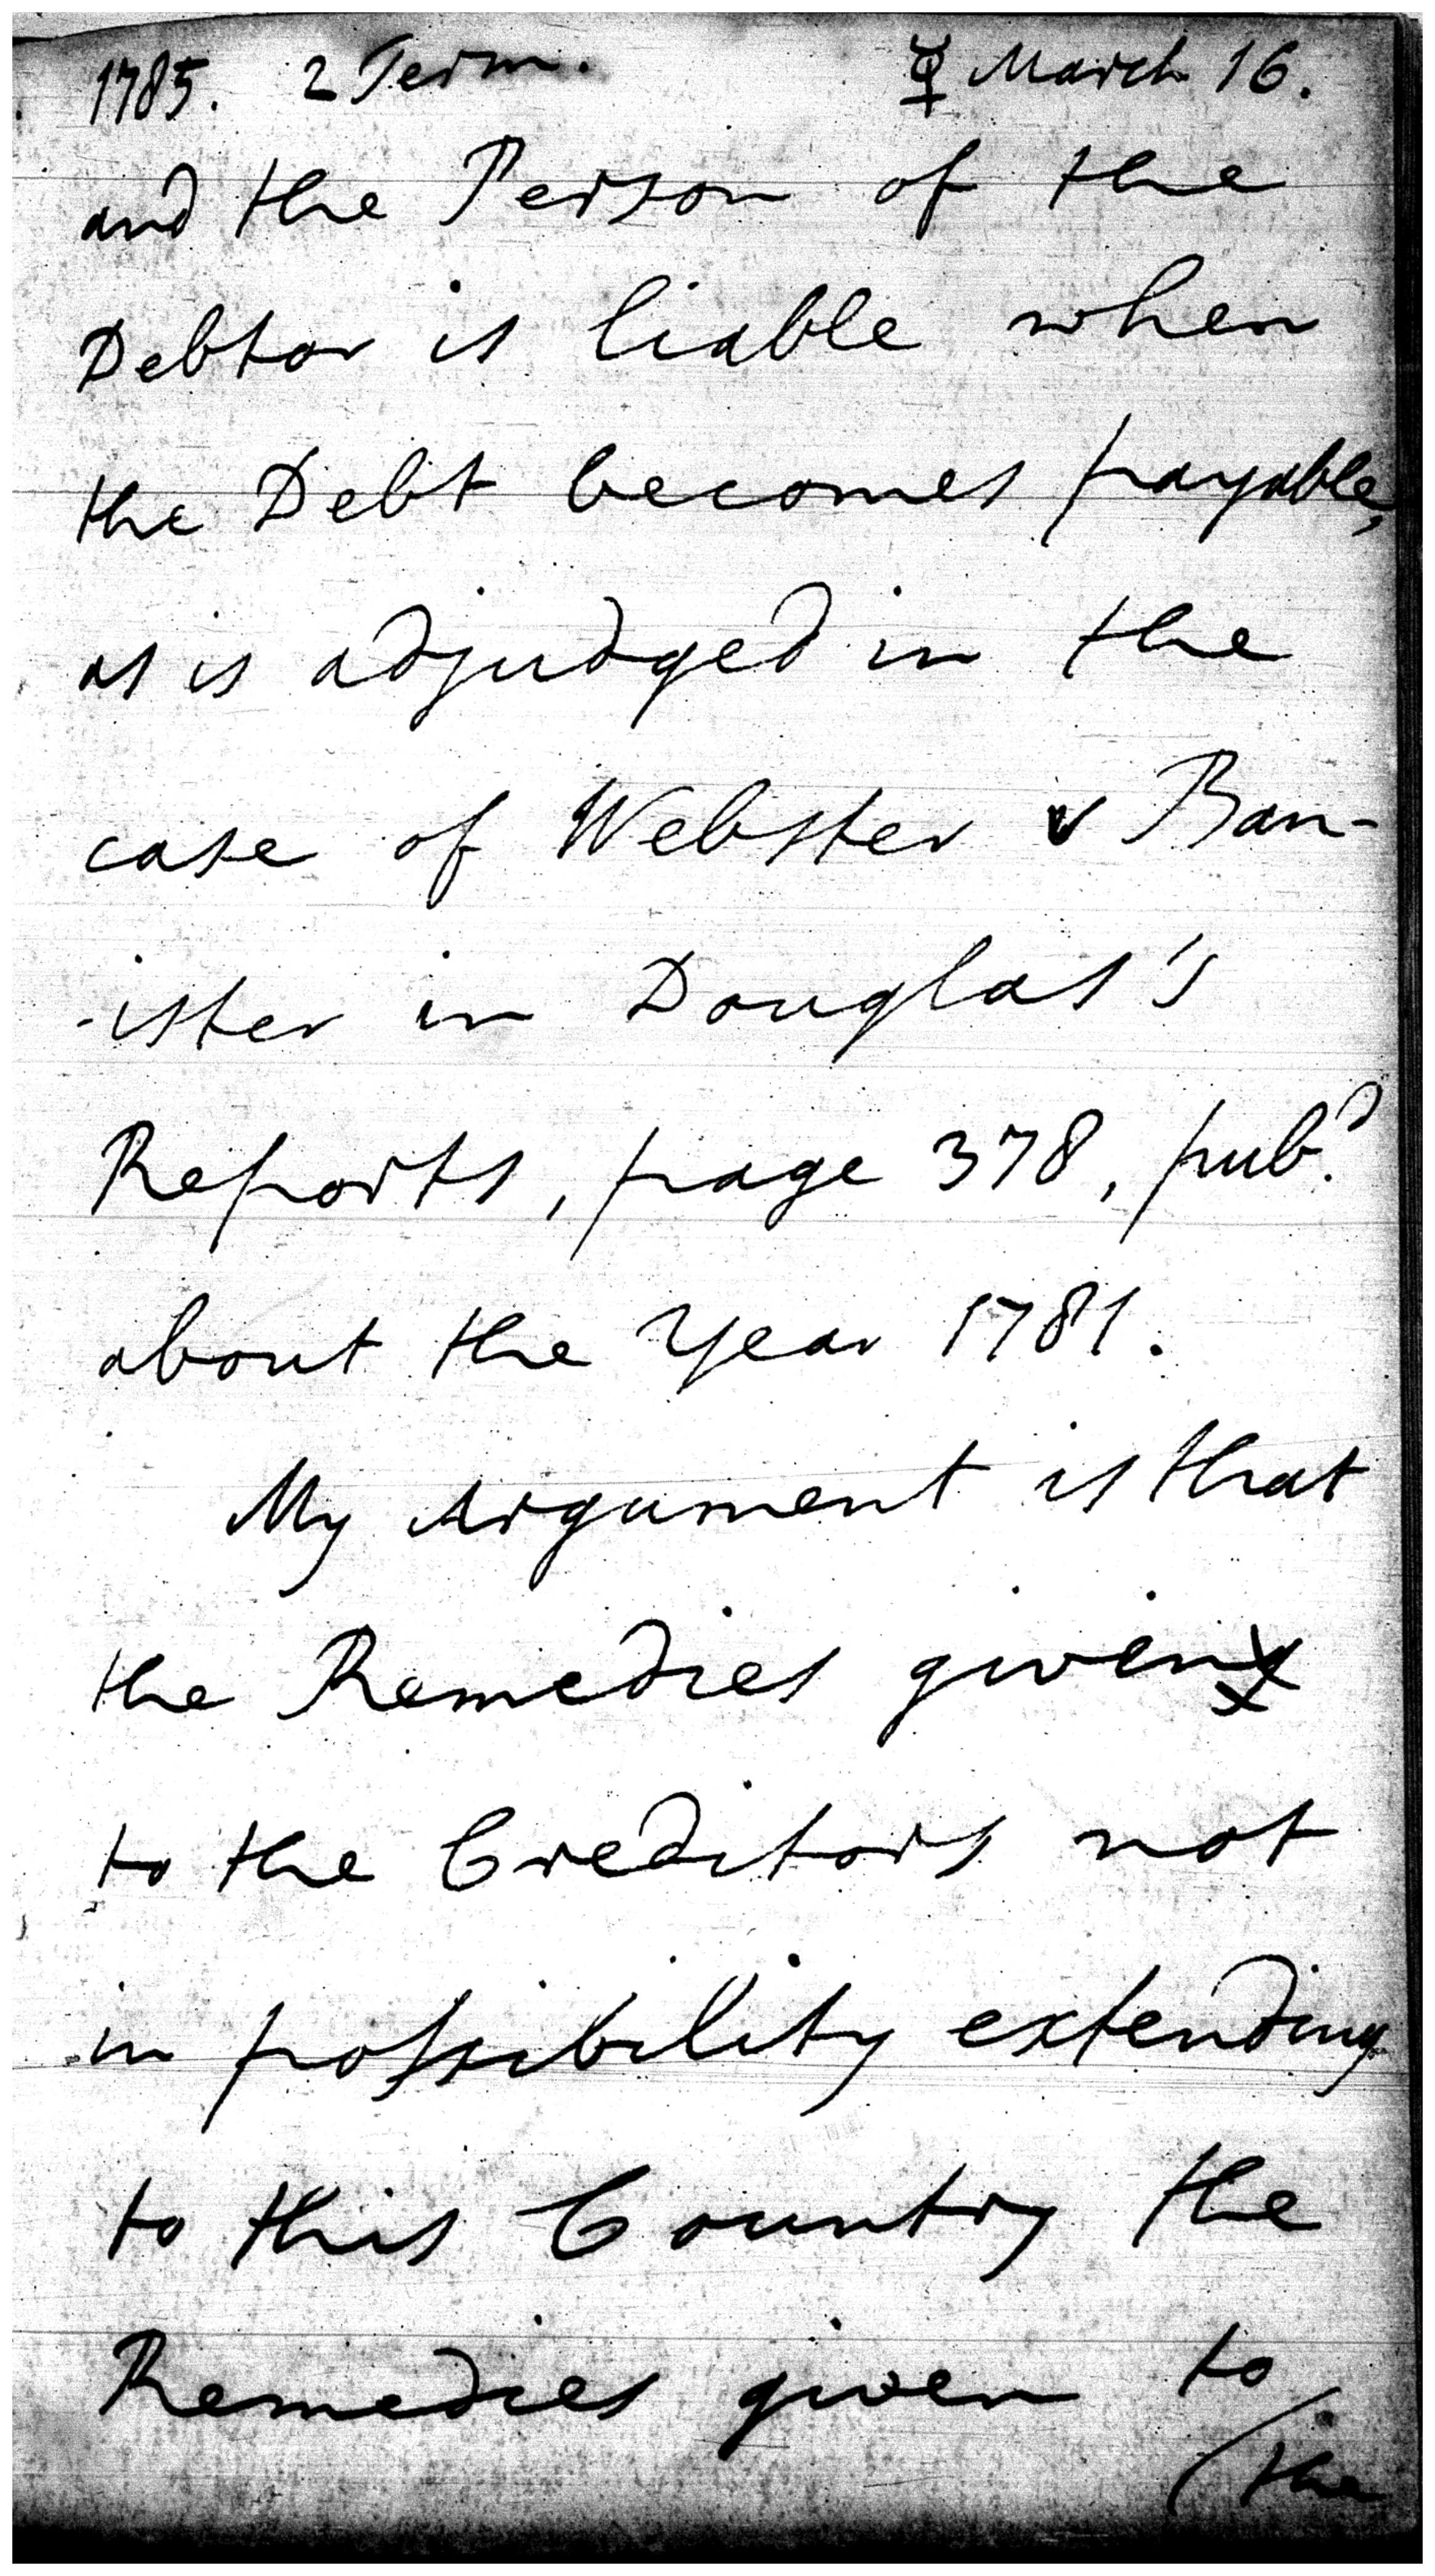 1785. 2 Term. ☿ March 16.
and the Person of the
Debtor is liable when
the Debt becomes payable,
as is adjudged in the
case of Webster v Ban-
-ister in Douglas's
Reports, page 378, pub.d
about the Year 1781.
My Argument is that
the Remedies given
to the Creditors not
in possibility extending
to this Country the
Remedies given to
(the